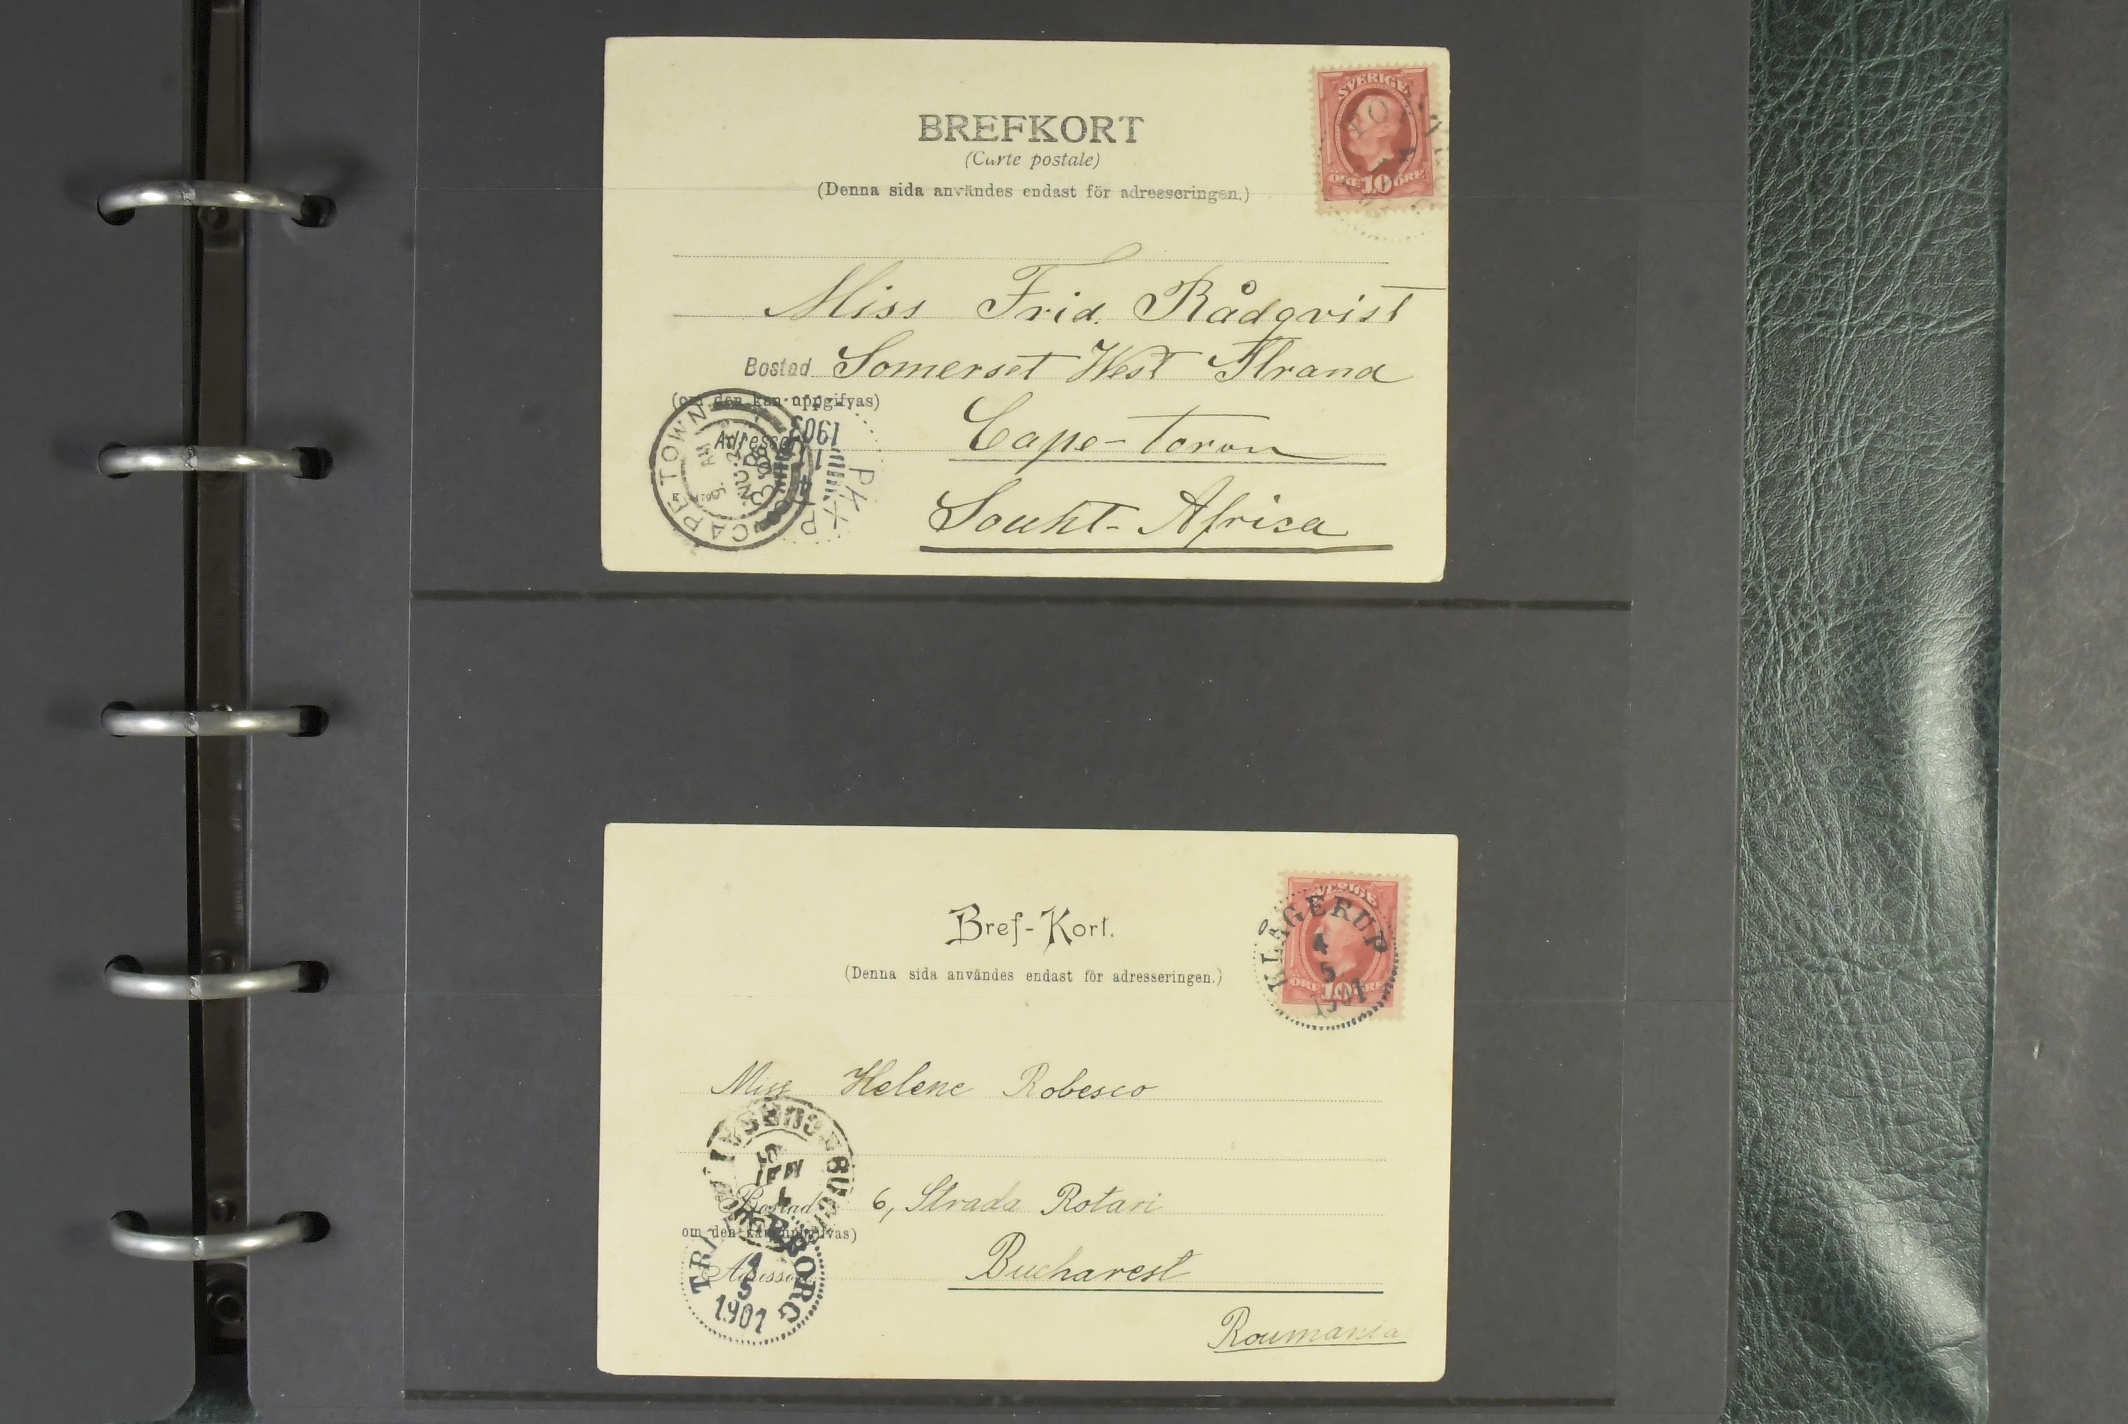 BREFKORT
(Carte postale)
(Denna sida användes endast för adresseringen.)
SVERIGE
ÖRE 10 ÖRE
Miss Frid. Rådqvist
Bostad Somerset West Strand
(om den kan uppgifvas)
Cape-town
Adress
Souht-Africa
CAPE TOWN
1903
Bref-Kort.
(Denna sida användes endast för adresseringen.)
SVERIGE
ÖRE 10 ÖRE
KLÅGERUP
4
5
1901
Miss Helene Robesco
Bostad 6, Strada Rotari
om den kan uppgifvas)
Adress Bucharest
Roumania
4
5
1901